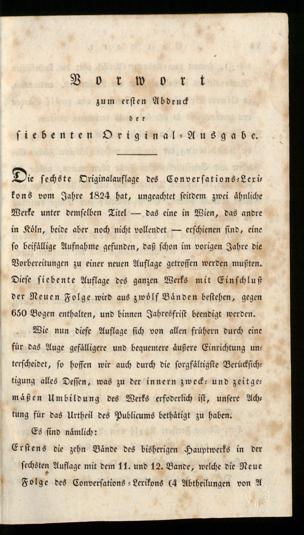 Vorwort
zum ersten Abdruck
der
siebenten Original-Ausgabe.
Die sechste Originalauflage des Conversations-Lexi-
kons vom Jahre 1824 hat, ungeachtet seitdem zwei ähnliche
Werke unter demselben Titel — das eine in Wien, das andre
in Köln, beide aber noch nicht vollendet — erschienen sind, eine
so beifällige Aufnahme gefunden, daß schon im vorigen Jahre die
Vorbereitungen zu einer neuen Auflage getroffen werden mußten.
Diese siebente Auflage des ganzen Werks mit Einschluß
der Neuen Folge wird aus zwölf Bänden bestehen, gegen
650 Bogen enthalten, und binnen Jahresfrist beendigt werden.
Wie nun diese Auflage sich von allen frühern durch eine
für das Auge gefälligere und bequemere äußere Einrichtung un-
terscheidet, so hoffen wir auch durch die sorgfältigste Berücksich-
tigung alles Dessen, was zu der innern zweck- und zeitge-
mäßen Umbildung des Werks erforderlich ist, unsere Ach-
tung für das Urtheil des Publicums bethätigt zu haben.
Es sind nämlich:
Erstens die zehn Bände des bisherigen Hauptwerks in der
sechsten Auflage mit dem 11. und 12. Bande, welche die Neue
Folge des Conversations-Lexikons (4 Abtheilungen von A